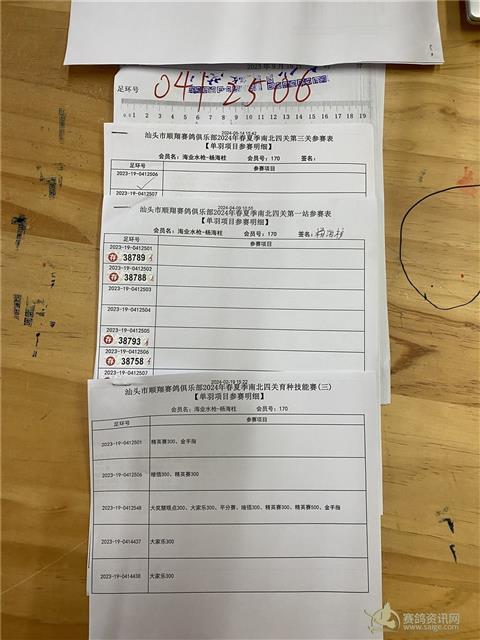 足环号
0412506
0 1 2 3 4 5 6 7 8 9 10 11 12 13 14 15 16 17 18 19
2024-05-14 10:42
汕头市顺翔赛鸽俱乐部2024年春夏季南北四关第三关参赛表
【单羽项目参赛明细】
会员名：海业水枪-杨海柱 会员号：170 签名：
足环号 参赛项目
2023-19-0412506
2023-19-0412507
2024-04-09 10:55
汕头市顺翔赛鸽俱乐部2024年春夏季南北四关第一站参赛表
【单羽项目参赛明细】
会员名：海业水枪-杨海柱 会员号：170 签名：杨海柱
足环号 参赛项目
2023-19-0412501
38789
2023-19-0412502
38788
2023-19-0412503
2023-19-0412504
2023-19-0412505
38793
2023-19-0412506
38758
2023-19-0412507
2024-02-19 15:22
汕头市顺翔赛鸽俱乐部2024年春夏季南北四关育种技能赛(三)
【单羽项目参赛明细】
会员名：海业水枪-杨海柱 会员号：170
足环号 参赛项目
2023-19-0412501 精英赛300、金手指
2023-19-0412506 雌倍300、精英赛300
2023-19-0412548 大奖慧眼点300、大家乐300、平分赛、雌倍300、精英赛300、精英赛500、金手指
2023-19-0414437 大家乐300
2023-19-0414438 大家乐300
赛鸽资讯网
www.saige.com